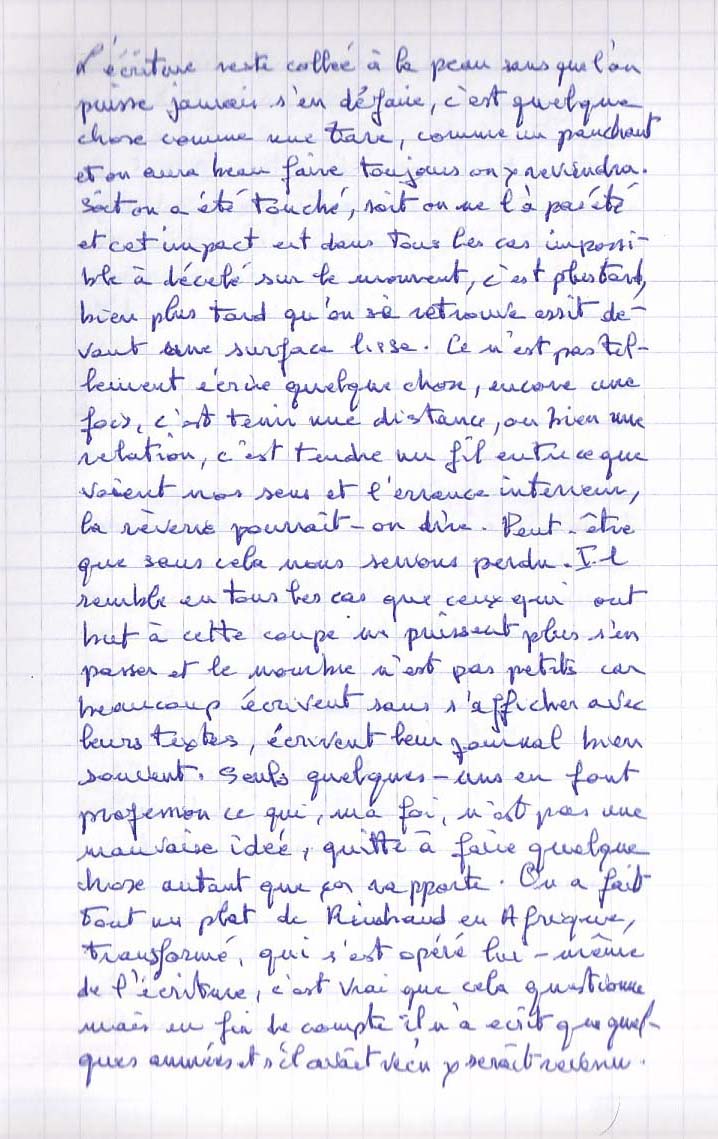 L'écriture reste collée à la peau sans que l'on
puisse jamais s'en défaire, c'est quelque
chose comme une tare, comme un panchant
et on aura beau faire toujours on y reviendra.
Soit on a été touché, soit on ne l'a pas été
et cet impact est dans tous les cas impossi-
ble à décelé sur le mouvent, c'est plus tard,
bien plus tard qu'on se retrouve assit de-
vant une surface lisse. Ce n'est pas tel-
lement écrire quelque chose, encore une
fois, c'est tenir une distance, ou bien une
relation, c'est tendre un fil entre ce que
voient nos sens et l'errance interieur,
la rêverie pourrait-on dire. Peut-être
que sans cela nous serions perdu. Il
semble en tous les cas que ceux qui ont
but à cette coupe ne puissent plus s'en
passer et le nombre n'est pas petits car
beaucoup écrivent sans s'afficher avec
leurs textes, écrivent leur journal bien
souvent. Seuls quelques-uns en font
profession ce qui, ma foi, n'est pas une
mauvaise idée, quitte à faire quelque
chose autant que ça rapporte. On a fait
tout un plat de Rimbaud en Afrique,
transformé, qui s'est opéré lui-même
de l'écriture, c'est vrai que cela questionne
mais en fin de compte il n'a écrit que quel-
ques années et s'il avait vécu y serait revenu.